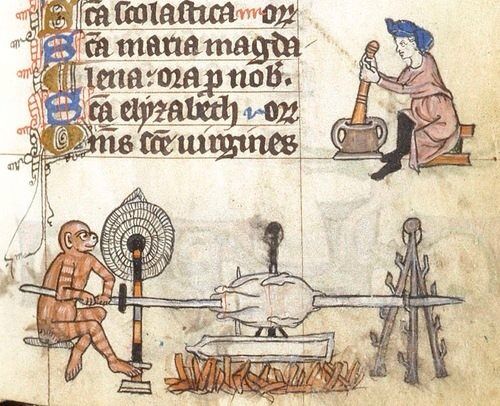 Sca scolastica or
Sca maria magda
lena: ora p nob.
Sca elyzabeth or
Oms sce virgines